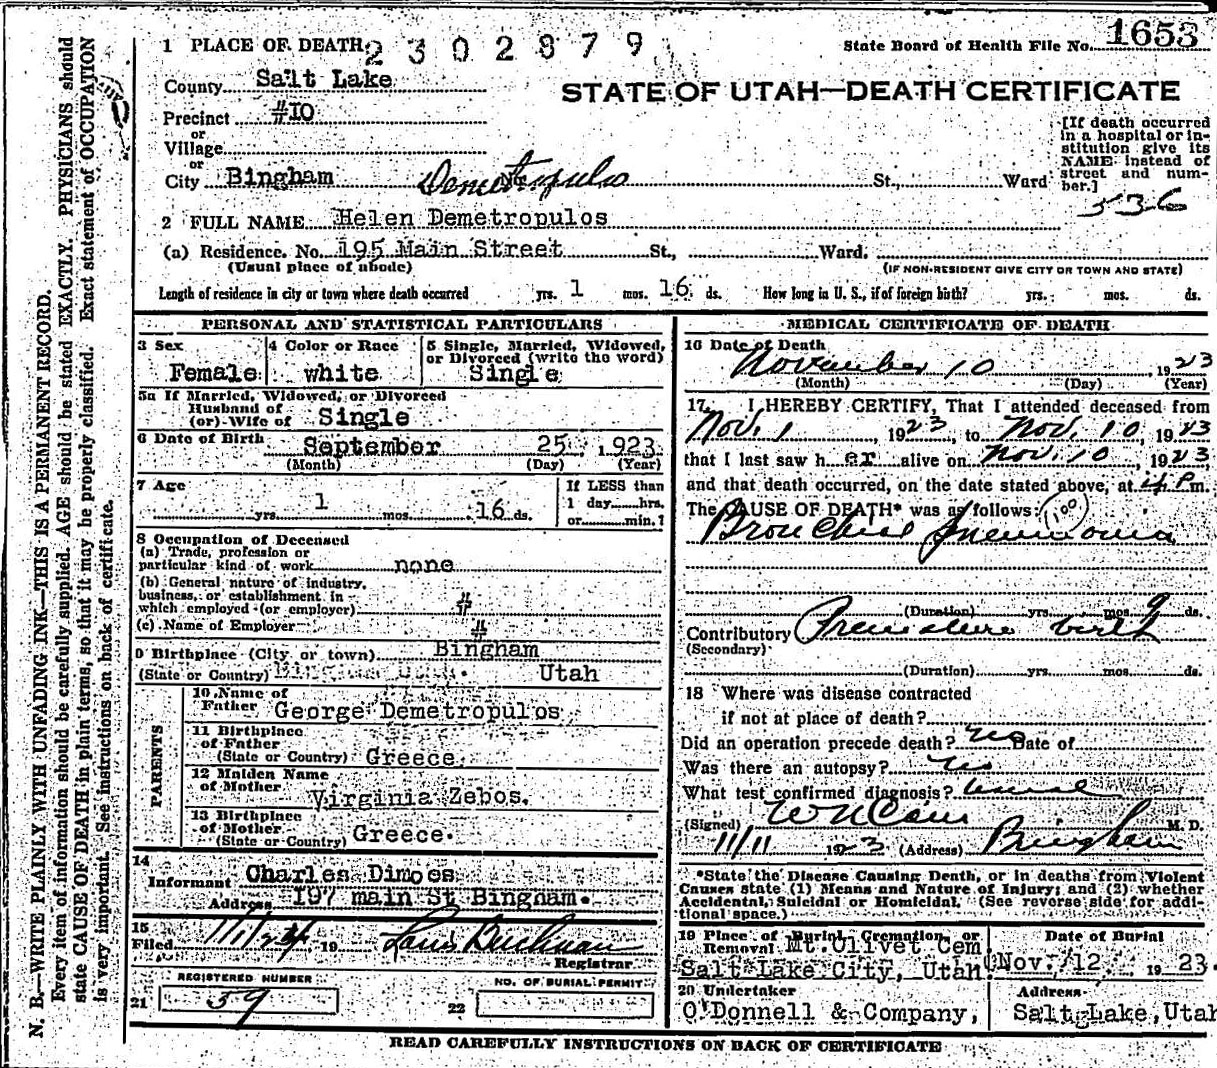 1653
1 PLACE OF DEATH 2302879 State Board of Health File No.
County Salt Lake
STATE OF UTAH—DEATH CERTIFICATE
Precinct #10
or
Village
or
City Bingham Demetropulos St., Ward
[If death occurred in a hospital or institution give its NAME instead of street and number.]
536
2 FULL NAME Helen Demetropulos
(a) Residence. No. 195 Main Street St., Ward.
(Usual place of abode) (IF NON-RESIDENT GIVE CITY OR TOWN AND STATE)
Length of residence in city or town where death occurred yrs. 1 mos. 16 ds. How long in U. S., if of foreign birth? yrs. mos. ds.
PERSONAL AND STATISTICAL PARTICULARS
3 Sex Female
4 Color or Race white
5 Single, Married, Widowed, or Divorced (write the word) Single
5a If Married, Widowed, or Divorced
Husband of
(or) Wife of Single
6 Date of Birth September 25 1923
(Month) (Day) (Year)
7 Age yrs. 1 mos. 16 ds.
If LESS than
1 day hrs.
or min.?
8 Occupation of Deceased
(a) Trade, profession or
particular kind of work none
(b) General nature of industry,
business, or establishment in
which employed (or employer) #
(c) Name of Employer #
9 Birthplace (City or town) Bingham
(State or Country) Utah
PARENTS
10 Name of
Father George Demetropulos
11 Birthplace
of Father
(State or Country) Greece.
12 Maiden Name
of Mother Virginia Zebos.
13 Birthplace
of Mother
(State or Country) Greece.
14
Informant Charles Dimoes
Address 197 main St Bingham.
15
Filed 19 Louis Buchman
Registrar
REGISTERED NUMBER
21 59
NO. OF BURIAL PERMIT
22
MEDICAL CERTIFICATE OF DEATH
16 Date of Death
November 10, 1923
(Month) (Day) (Year)
17. I HEREBY CERTIFY, That I attended deceased from
Nov. 1, 1923, to Nov. 10, 1923
that I last saw her alive on Nov. 10, 1923,
and that death occurred, on the date stated above, at 4 P m.
The CAUSE OF DEATH* was as follows: 100
Bronchial pneumonia
(Duration) yrs. mos. 9 ds.
Contributory Premature birth
(Secondary)
(Duration) yrs. mos. ds.
18 Where was disease contracted
if not at place of death?
Did an operation precede death? no Date of
Was there an autopsy? no
What test confirmed diagnosis? usual
(Signed) M. D.
11/11 1923 (Address) Bingham
*State the Disease Causing Death, or in deaths from Violent
Causes state (1) Means and Nature of Injury; and (2) whether
Accidental, Suicidal or Homicidal. (See reverse side for addi-
tional space.)
19 Place of Burial Cremation, or
Removal Mt. Olivet Cem
Salt Lake City, Utah
Date of Burial
Nov. 12. 1923.
20 Undertaker
O'Donnell & Company,
Address
Salt Lake, Utah
READ CAREFULLY INSTRUCTIONS ON BACK OF CERTIFICATE
N. B.—WRITE PLAINLY WITH UNFADING INK—THIS IS A PERMANENT RECORD.
Every item of information should be carefully supplied. AGE should be stated EXACTLY. PHYSICIANS should
state CAUSE OF DEATH in plain terms, so that it may be properly classified. Exact statement of OCCUPATION
is very important. See instructions on back of certificate.